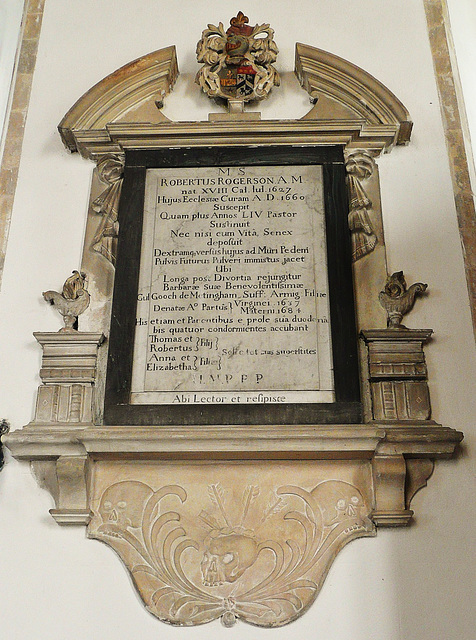 M S
ROBERTUS ROGERSON A M
nat XVIII Cal. Iul. 1627
Hujus Ecclesiæ Curam A D. 1660
Suscepit
Quam plus Annos LIV Pastor
Sustinuit
Nec nisi cum Vitâ, Senex
deposuit
Dextram versus hujus ad Muri Pedem
Pulvis Futurus Pulveri immistus jacet
Ubi
Longa post Divortia rejungitur
Barbaræ suæ Benevolentissimæ
Gul Gooch de Metingham, Suff. Armig. Filiæ
Denatæ Aº Partus Virginei 1637
Materni 1684
His etiam et Parentibus e prole sua duode
bis quatuor condormientes accubant
Thomas et
Robertus Filij
Anna et superstites
Elizabetha Filiæ
Abi Lector et resipisce